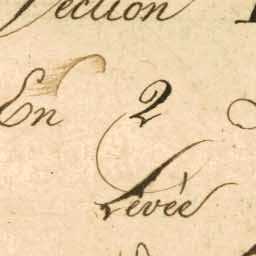 Section
En 2
Levée